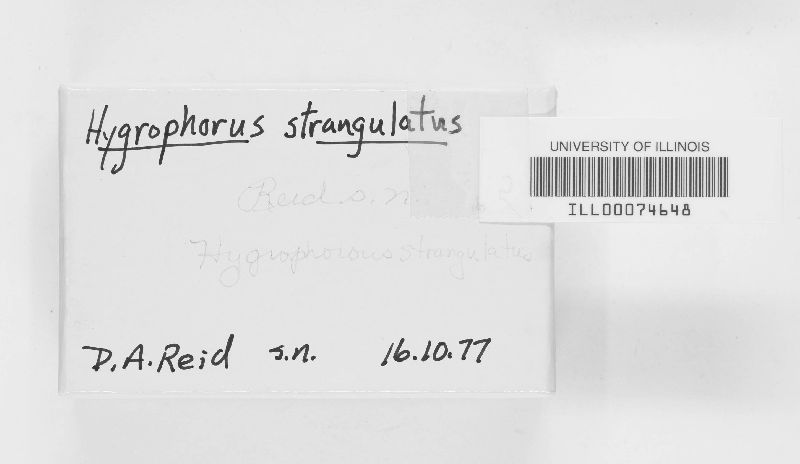 Hygrophorus strangulatus
UNIVERSITY OF ILLINOIS
ILL00074648
Reid s.n.
Hygrophorous strangulatus
D.A.Reid s.n. 16.10.77